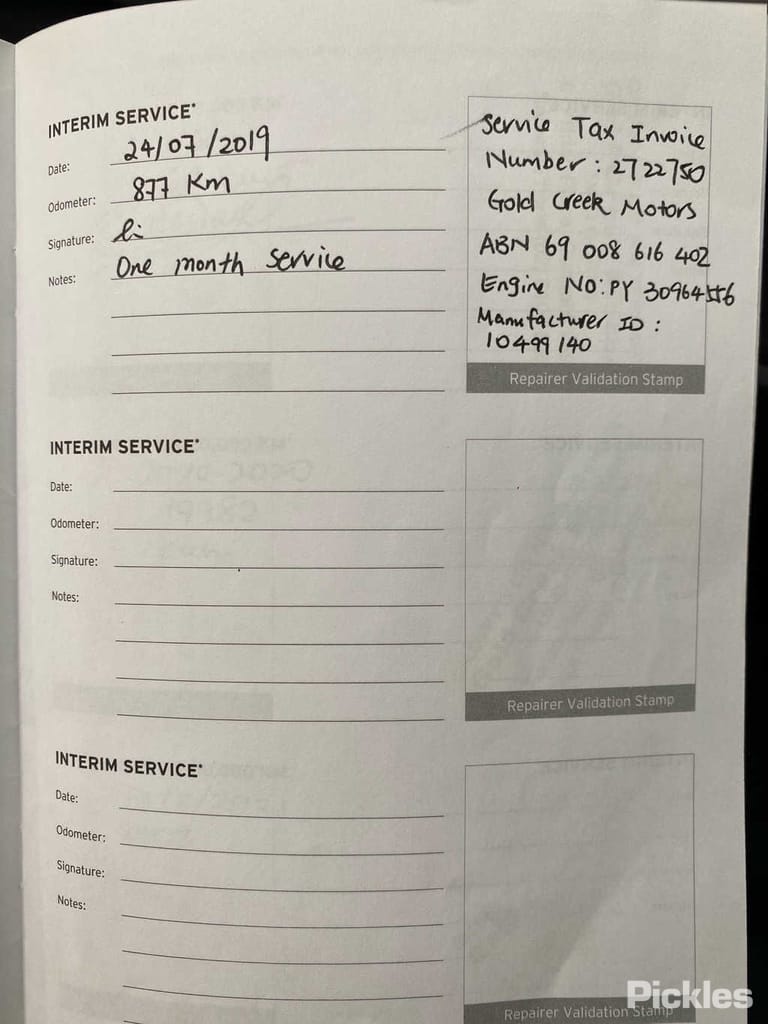 INTERIM SERVICE*
Date: 24/07/2019
Odometer: 877 Km
Signature: li
Notes: One month service
Service Tax Invoice
Number: 2722750
Gold Creek Motors
ABN 69 008 616 402
Engine NO: PY 30964556
Manufacturer ID:
10499140
Repairer Validation Stamp
INTERIM SERVICE*
Date:
Odometer:
Signature:
Notes:
Repairer Validation Stamp
INTERIM SERVICE*
Date:
Odometer:
Signature:
Notes:
Repairer Validation Stamp
Pickles